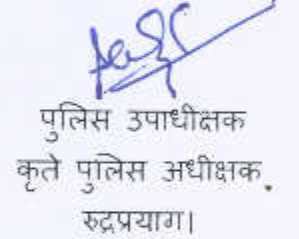 पुलिस उपाधीक्षक
कृते पुलिस अधीक्षक
रुद्रप्रयाग।